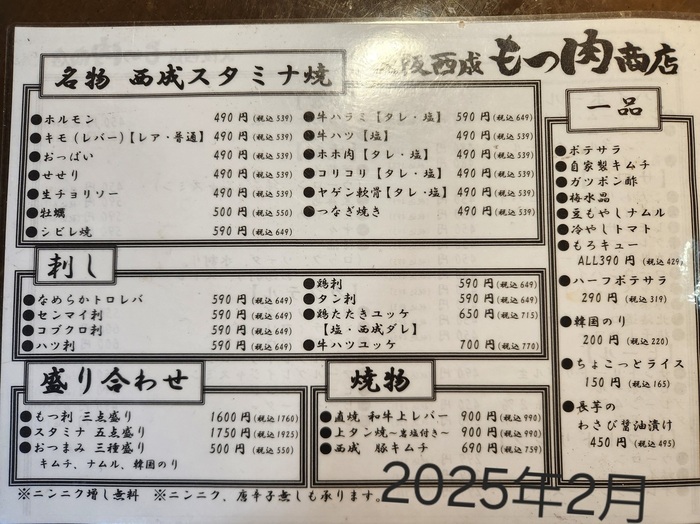 阪西成 もつ肉商店
名物 西成スタミナ焼
●ホルモン 490円(税込539)
●キモ(レバー)【レア・普通】 490円(税込539)
●おっぱい 490円(税込539)
●せせり 490円(税込539)
●生チョリソー 490円(税込539)
●牡蠣 500円(税込550)
●シビレ焼 590円(税込649)
●牛ハラミ【タレ・塩】 590円(税込649)
●牛ハツ【塩】 490円(税込539)
●ホホ肉【タレ・塩】 490円(税込539)
●コリコリ【タレ・塩】 490円(税込539)
●ヤゲン軟骨【タレ・塩】 490円(税込539)
●つなぎ焼き 490円(税込539)
刺し
●なめらかトロレバ 590円(税込649)
●センマイ刺 590円(税込649)
●コブクロ刺 590円(税込649)
●ハツ刺 590円(税込649)
●鶏刺 590円(税込649)
●タン刺 590円(税込649)
●鶏たたきユッケ 650円(税込715)
【塩・西成ダレ】
●牛ハツユッケ 700円(税込770)
盛り合わせ
●もつ刺 三点盛り 1600円(税込1760)
●スタミナ 五点盛り 1750円(税込1925)
●おつまみ 三種盛り 500円(税込550)
キムチ、ナムル、韓国のり
焼物
●直焼 和牛上レバー 900円(税込990)
●上タン焼〜岩塩付き〜 900円(税込990)
●西成 豚キムチ 690円(税込759)
一品
●ポテサラ
●自家製キムチ
●ガツポン酢
●梅水晶
●豆もやしナムル
●冷やしトマト
●もろキュー
ALL390円(税込429)
●ハーフポテサラ
290円(税込319)
●韓国のり
200円(税込220)
●ちょこっとライス
150円(税込165)
●長芋の
わさび醤油漬け
450円(税込495)
※ニンニク増し無料 ※ニンニク、唐辛子無しも承ります。
2025年2月